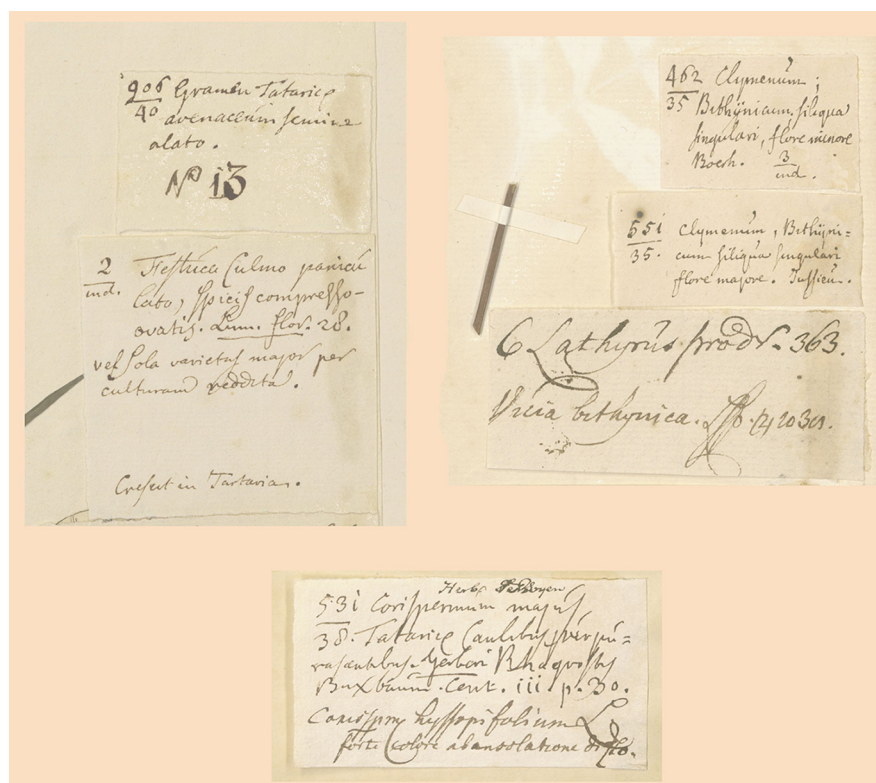 906 Gramen Tataricū
40 avenaceum semine
alato.
No 13
2 Festuca Culmo panicu
ind. lato, spicis compresso-
ovatis. Linn. flor. 28.
vel sola varietas major per
culturam reddita.
Crescit in Tartaria.
462 Clymenum;
35 Bithÿnicum siliqua
singulari, flore minore
Boerh. 3
ind.
551 Clymenum, Bithÿni=
35. cum siliquâ singulari
flore majore. Jussieu.
6 Lathyrus prodr. 363.
Vicia bithynica. Sp. 1038.
Herb.
531 Corispermum majus
38. Tataricū Caulibus purpu=
rascentibus. Gerberi Rhagrostis
Buxbaum. Cent. iii. p. 30.
Corisperm hyssopifolium L
forte Colore ab insolatione